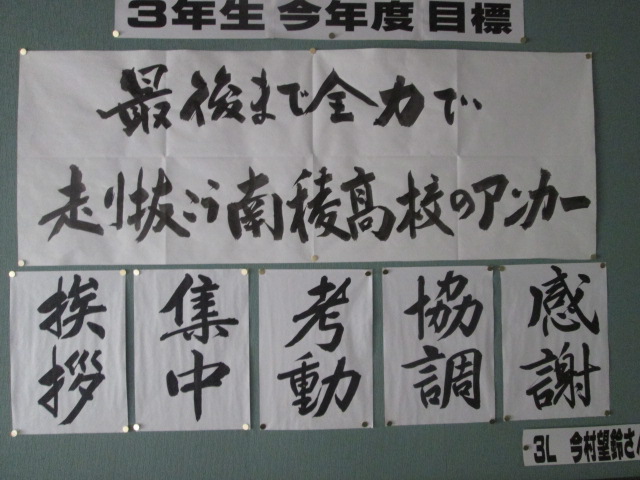 3年生 今年度 目標
最後まで全力で
走り抜こう南稜高校のアンカー
挨拶
集中
考動
協調
感謝
3L 今村望鈴さん